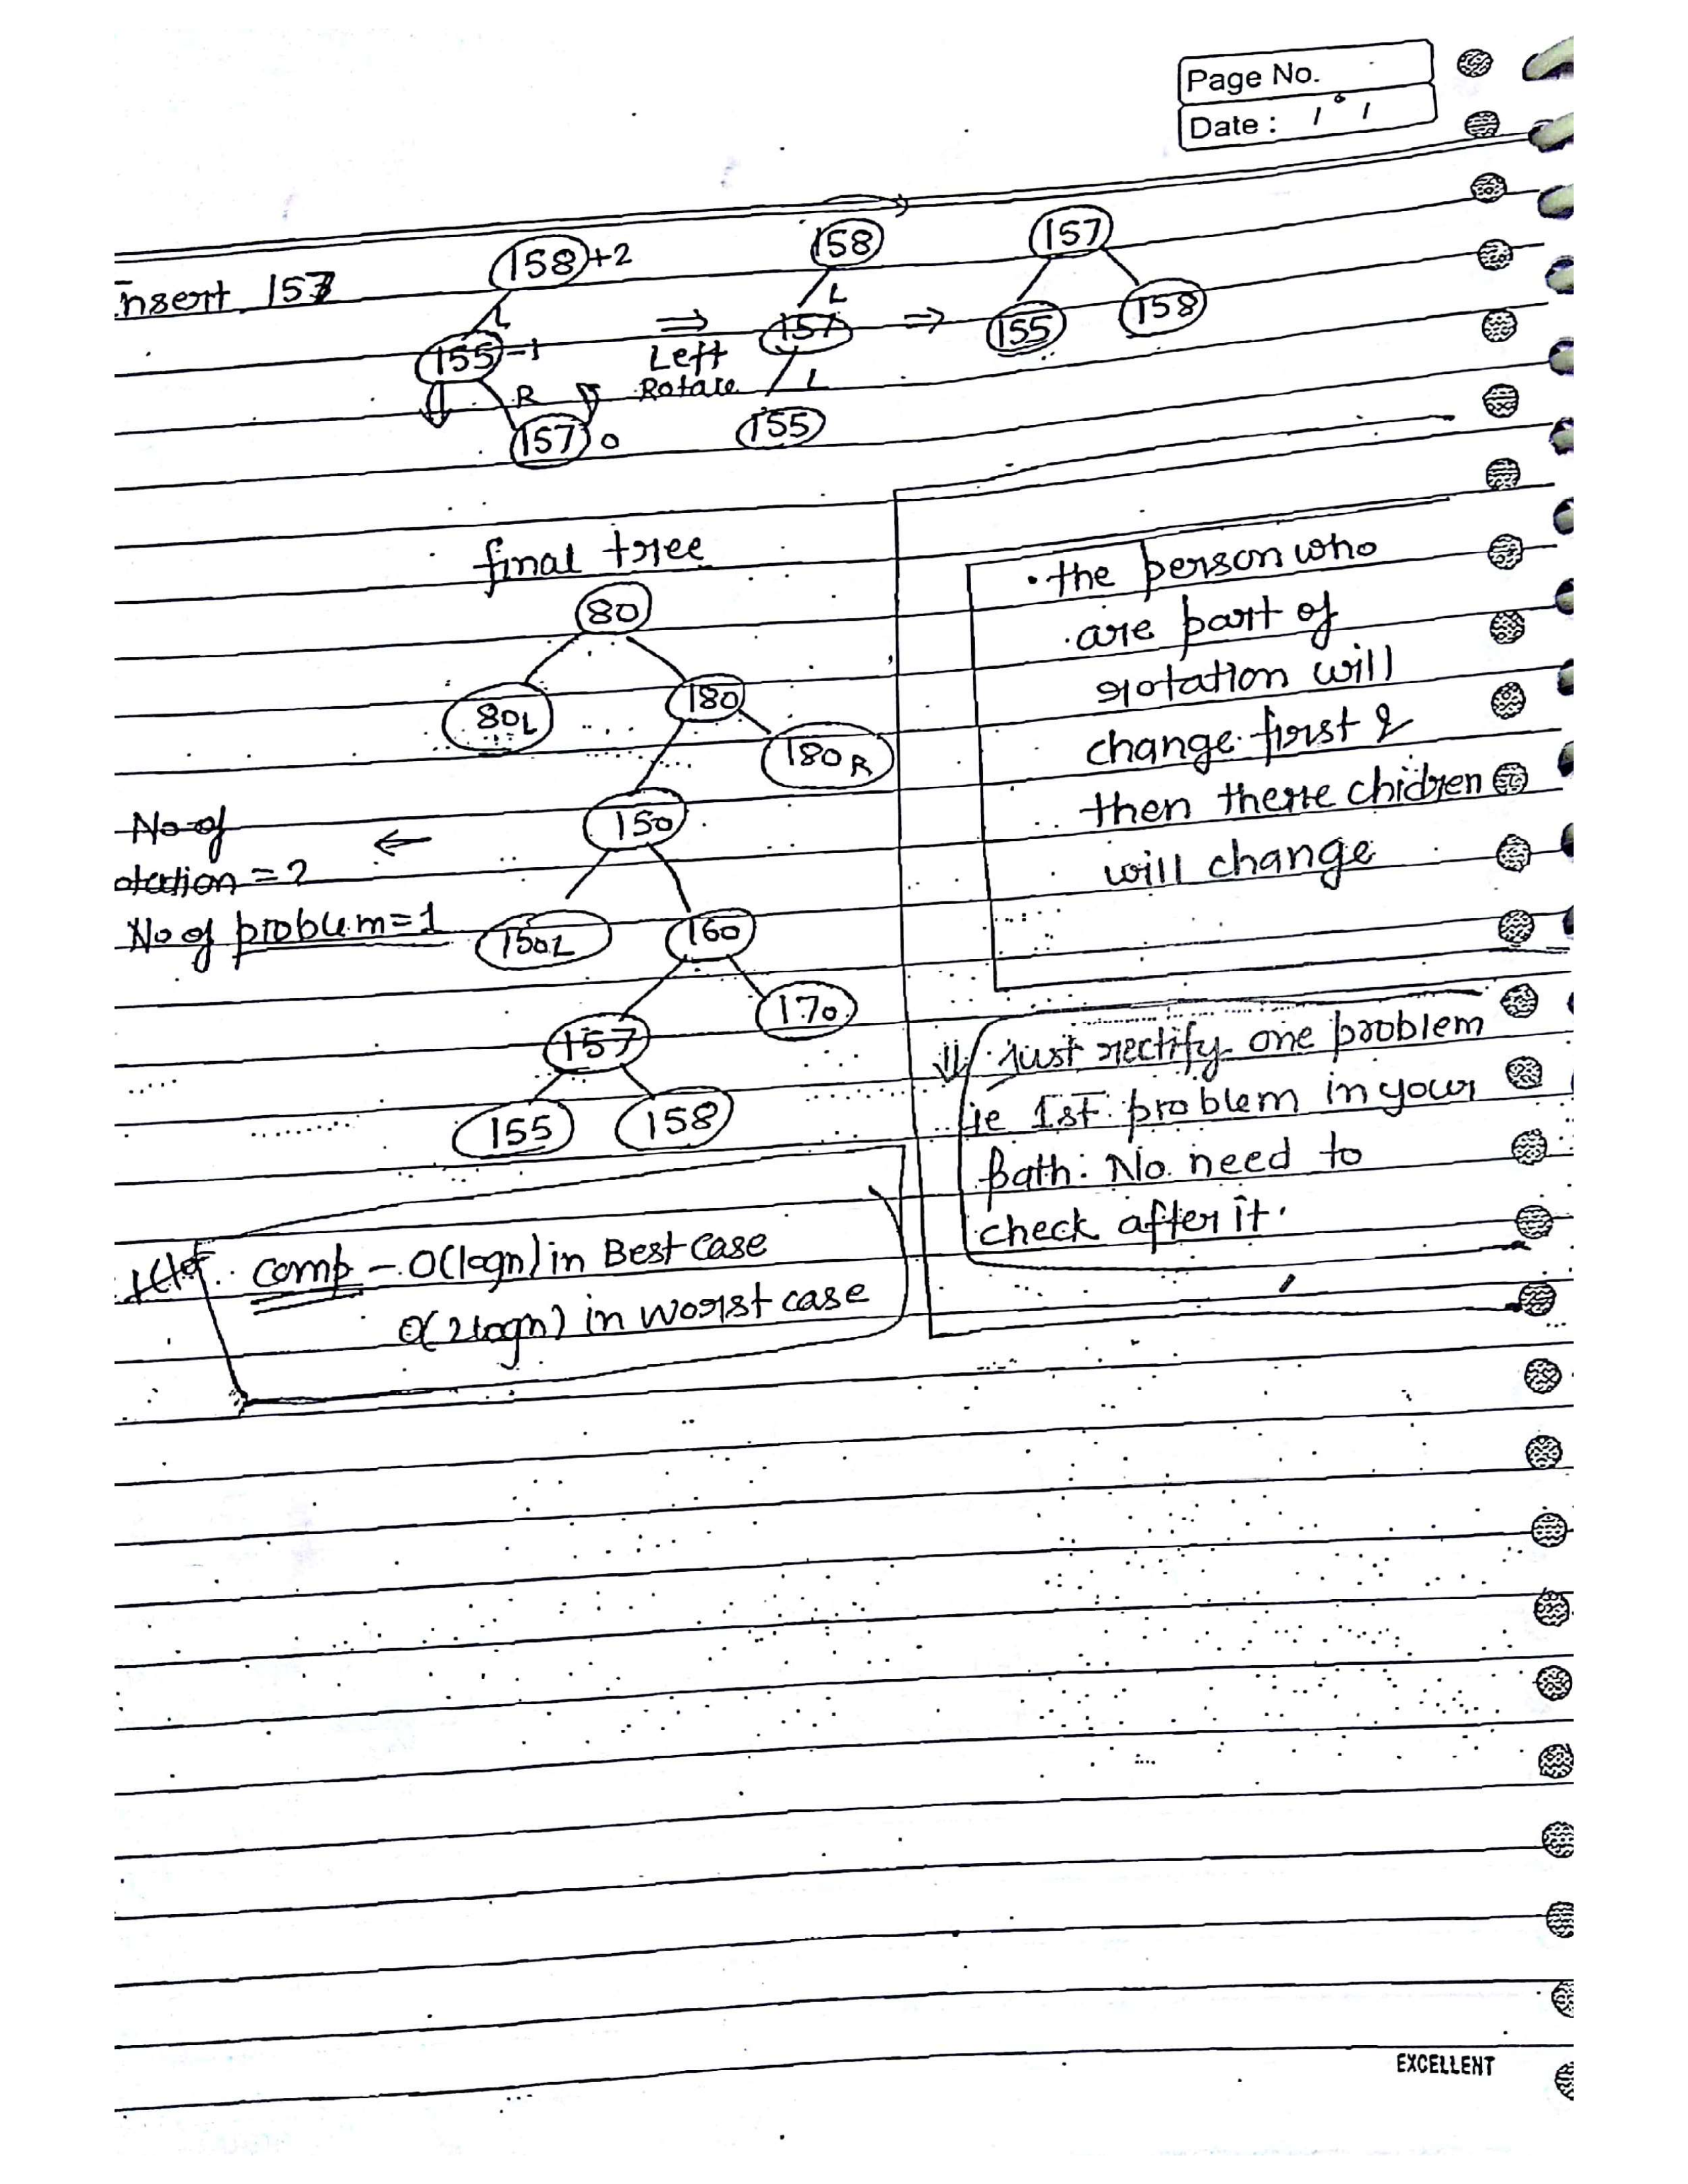 Page No.
Date : / /
insert 157
158 +2
L
155 -1
R
157 0
⇒
Left
Rotate
158
L
157
L
155
⇒
157
155 158
final tree
80
80L 180
180R
150
150L 160
157 170
155 158
No of
otation = 2
No of problem = 1
←
• the person who
are part of
rotation will
change first &
then there chidren
will change
⇓ just rectify one problem
ie 1st problem in your
path: No need to
check after it.
comp - O(logn) in Best Case
O(2logn) in worst case
EXCELLENT